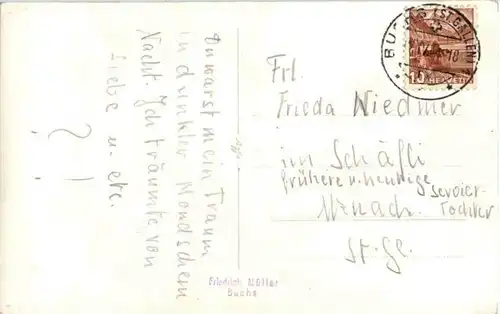 Du warst mein Traum
in dunkler Mondschein
Nacht. Ich träumte von
Liebe u. etc.
? !
BUCHS (ST. GALLEN)
10
HELVETIA
Frl.
Frieda Niedmer
im Schäfli
frühere u. heutige Servier-
Uznach. Tochter
St. Ga.
Friedrich Müller
Buchs